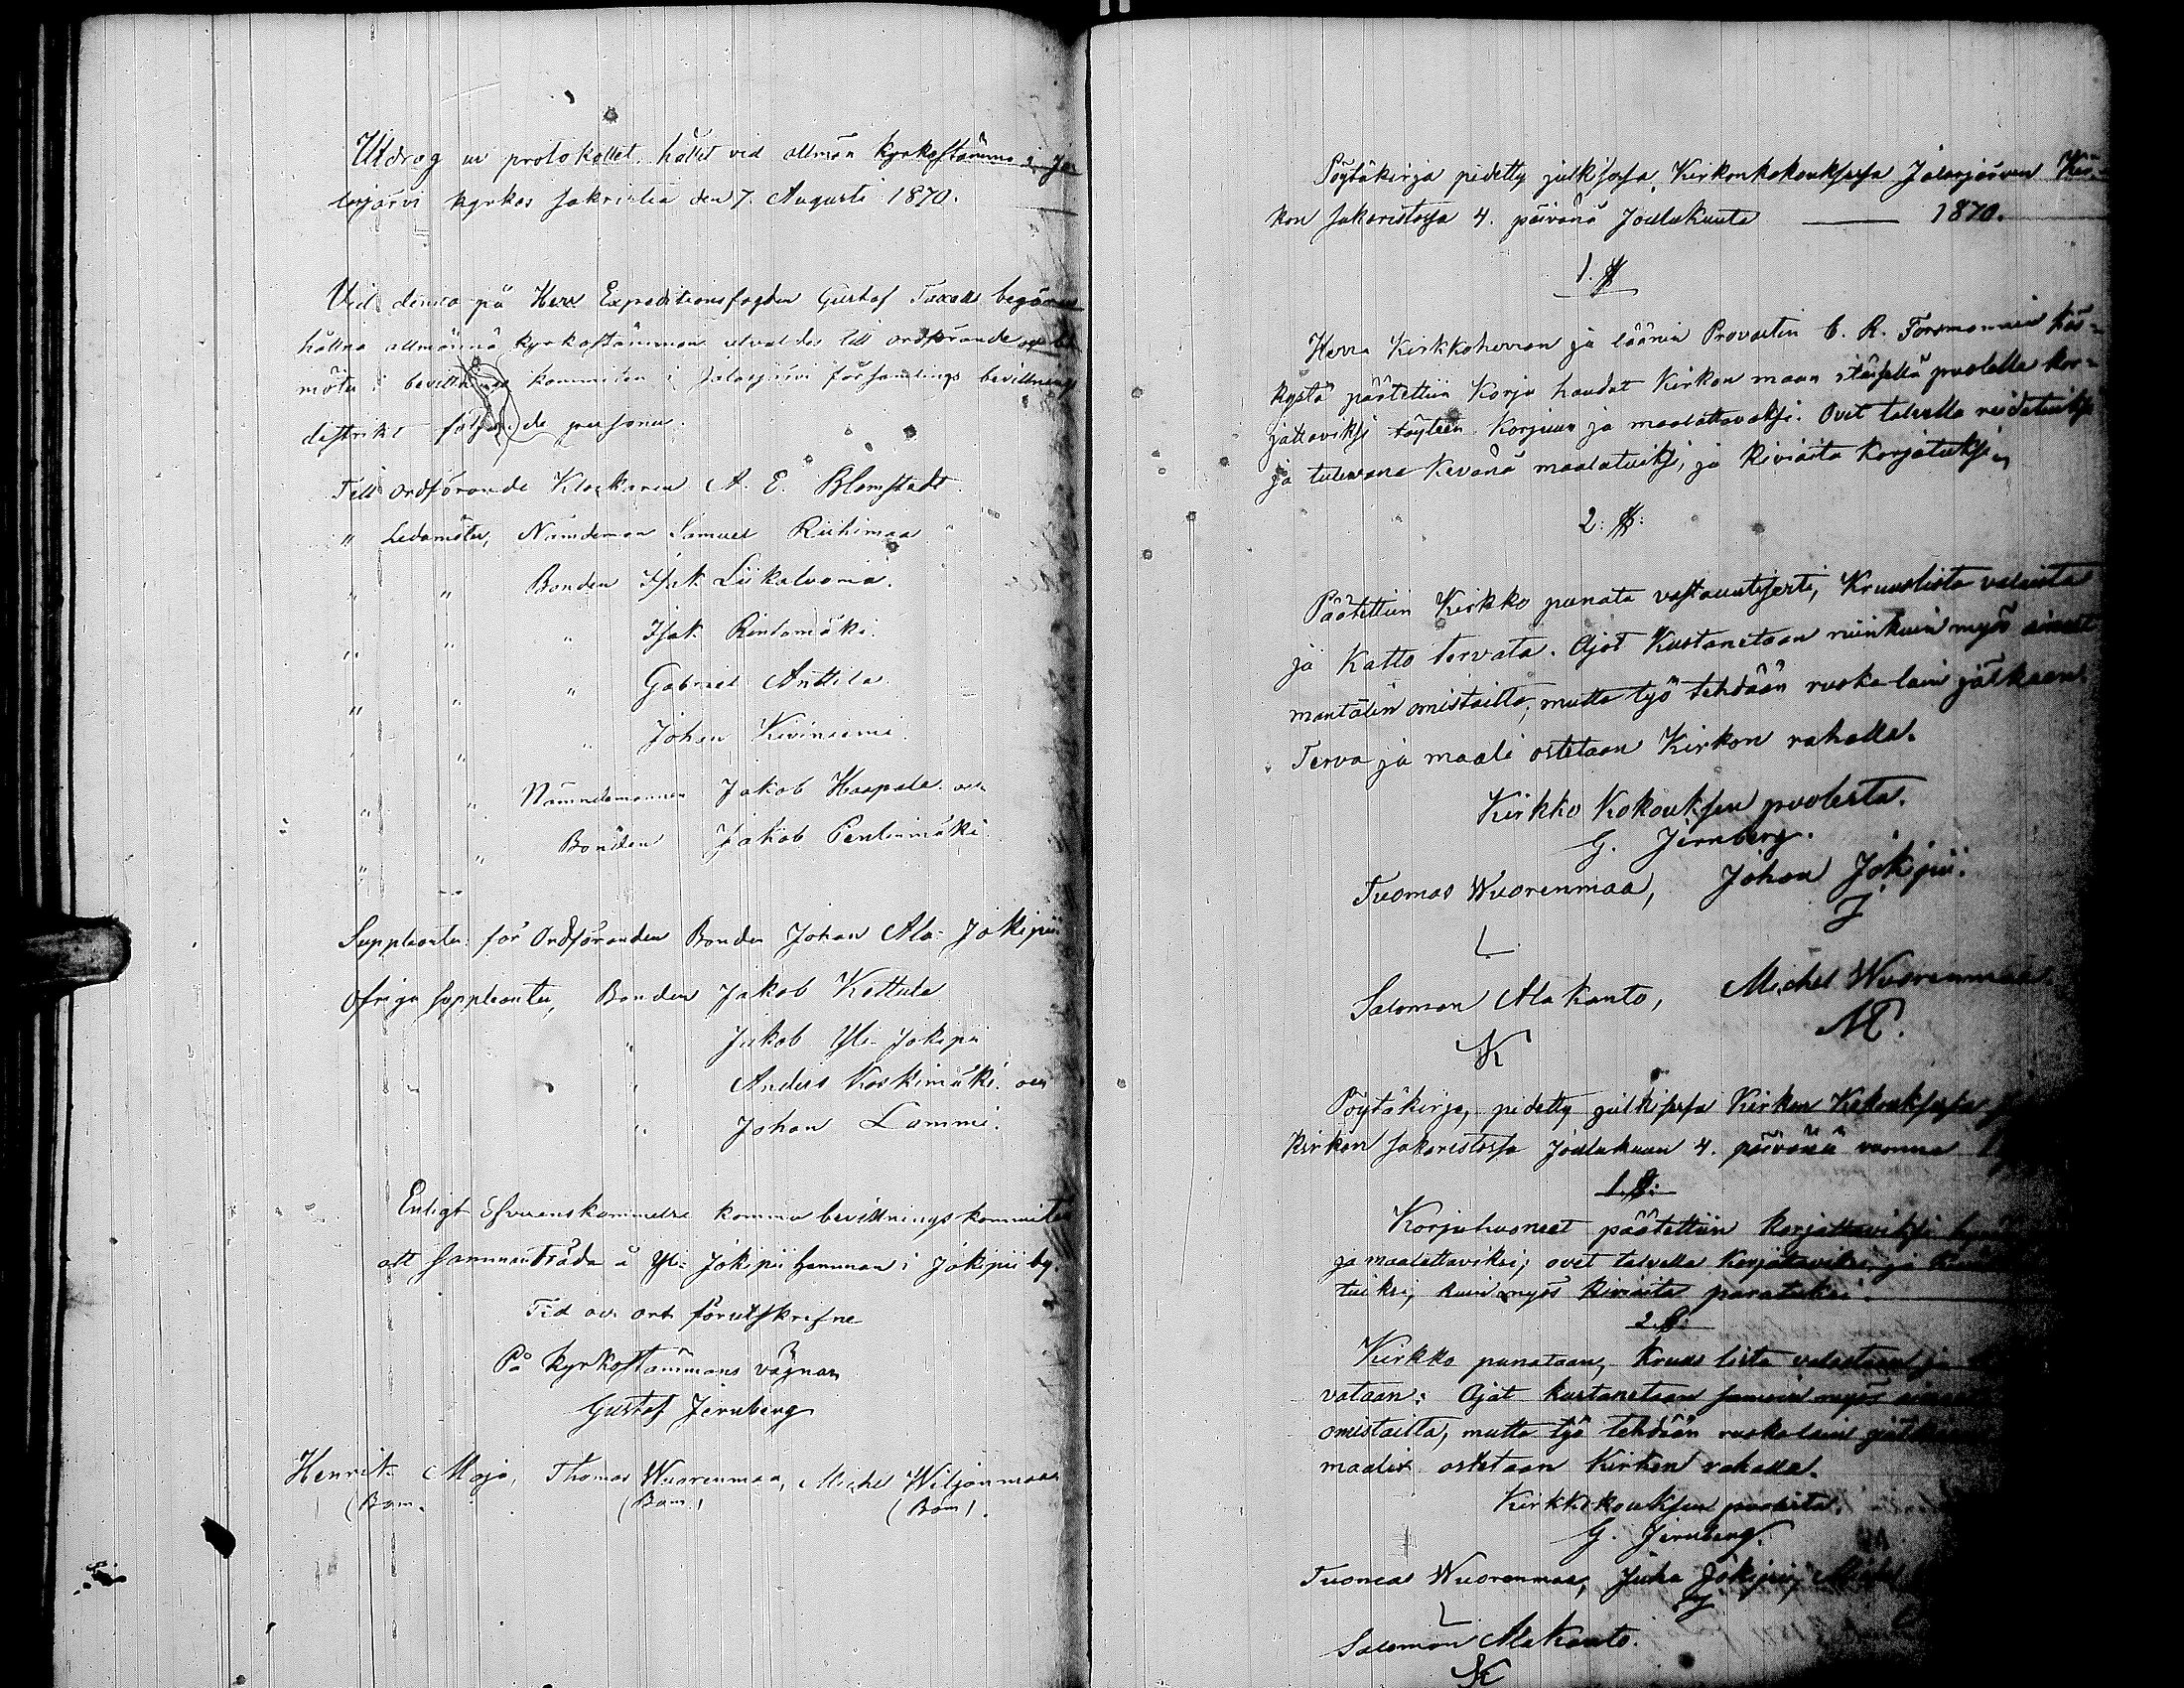 Utdrag ur protokollet, hållet vid allmän kyrkostämma i Ja
lasjärvi kyrkas sakristia den 7. Augusti 1870.
Vid denna på Herr Expeditionsfogden Gustaf begäran
hållna allmänna kyrkostämman utvaldes till ordförande och leda
möter i bevillnings kommitén i Jalasjärvi församlings bevillnings
distrikt följande personer.
Till ordförande Klockaren A. E. Blomstedt.
" Ledamöter, Nämdeman Samuel Riihimaa
" " Bonden Isak Liikaluoma.
" " " Isak Rintamäki.
" " " Gabriel Anttila.
" " " Johan Kiviniemi.
" " Nämndemannen Jakob Haapala och
" " Bonden Jakob Pentinmäki
Suppleanter för Ordföranden Bonden Johan Ala-Jokipii
Öfriga suppleanter, Bonden Jakob Kettula
" Jakob Yli-Jokipii
" Anders Koskimäki och
" Johan Lammi.
Enligt öfverenskommelse komma bevillnings kommitén
att sammanträda å Yli-Jokipii hemman i Jokipii by.
Tid och ort förutskrifne
På Kyrkostämmans vägnar
Gustaf Jernberg
Henrik Maja, Thomas Wuorenmaa, Michel Wiljanmaa
(Bom. (Bom.) (Bom).
Pöytäkirja pidetty julkisessa Kirkonkokouksessa Jalasjärven Kir-
kon sakaristossa 4. päivänä Joulukuuta 1870.
1. §
Herra Kirkkoherran ja läänin Provastin C. R. Forsmannin käs-
kystä päätettiin Korju huudat Kirkon maan itäisellä puolella kor-
jattaviksi täyteen Korjuun ja maalattavaksi. Ovet talvella
ja tulevana Kevänä maalatuiksi, ja Kiviaita Korjatuksi.
2. §:
Päätettiin Kirkko punata vastauutisesti, Kruuslista valaista
ja Katto tervata. Ajot Kustanetaan niinkuin myös aineet
mantalin omistailta, mutta työ tehdään ruoka lain jälkeen.
Terva ja maali ostetaan Kirkon rahalla.
Kirkko Kokouksen puolesta.
G. Jernberg.
Tuomas Wuorenmaa, Johan Jokipii.
L J
Salomon Alakanto, Michel Wuorenmaa
K M.
Pöytäkirja, pidetty julkisessa Kirkon Kokouksessa
Kirkon sakaristossa Joulukuun 4. päivänä vuonna
1. §.
Korjuhuoneet päätettiin korjattaviksi
ja maalattaviksi; ovet talvella Korjattaviksi, ja
tuiksi, kuin myös Kiviaita paratuksi.
2. §.
Kirkko punataan, Kruus lista valaistaan ja
vataan: Ajot kustanetaan samoin myös
omistailta, mutta työ tehdään ruoka lain
maalit ostetaan Kirkon rahalla.
Kirkkokouksen puolesta.
G. Jernberg.
Tuomas Wuorenmaa, Juha Jokipii, Michel
L J
Salomon Alakanto.
K